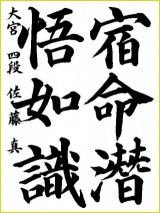 宿命潜
悟如識
大宮 四段 佐藤 真